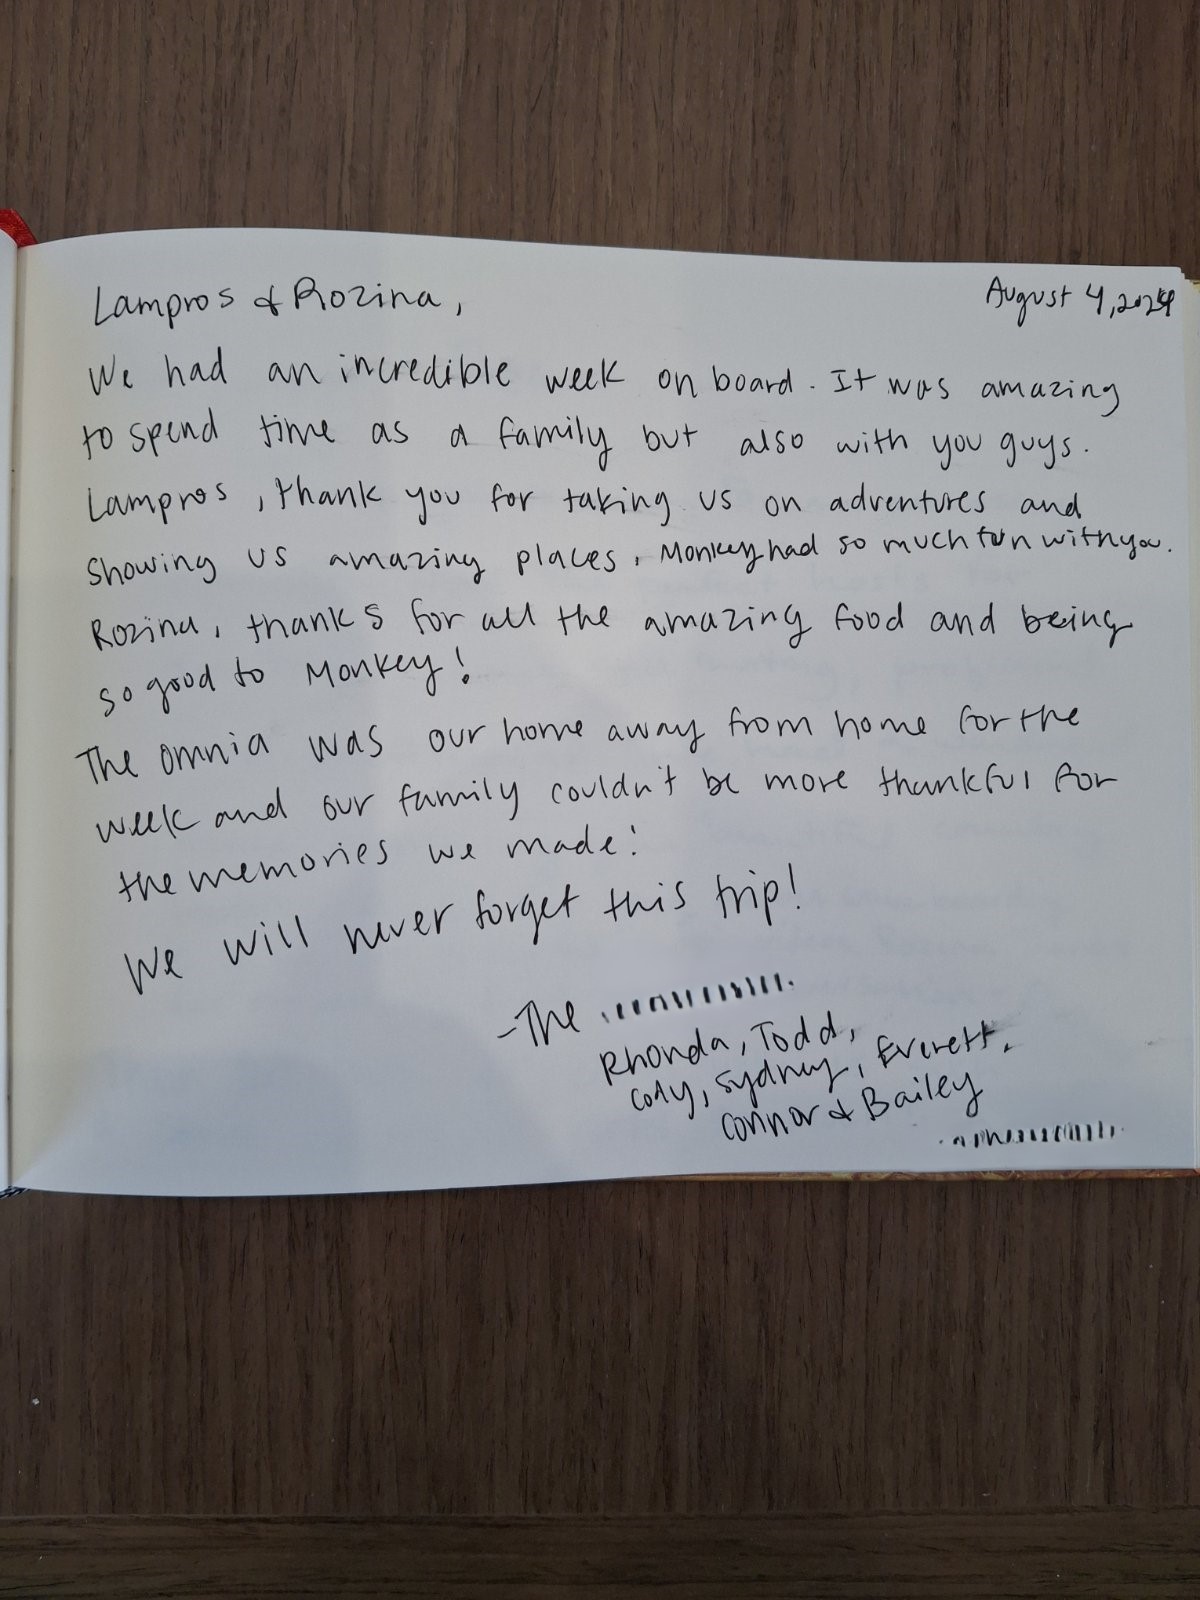 Lampros & Rozina,
August 4, 2024
We had an incredible week on board. It was amazing
to spend time as a family but also with you guys.
Lampros, thank you for taking us on adventures and
showing us amazing places. Monkey had so much fun with you.
Rozina, thanks for all the amazing food and being
so good to Monkey!
The Omnia was our home away from home for the
week and our family couldn't be more thankful for
the memories we made!
We will never forget this trip!
-The
Rhonda, Todd,
Cody, Sydney, Everett,
Connor & Bailey